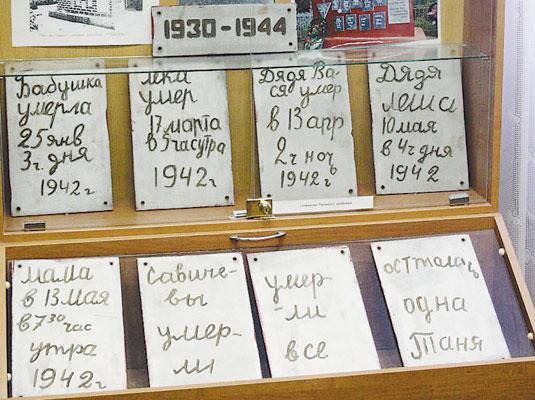 1930-1944
Бабушка
умерла
25 янв
3 ч. дня
1942 г
лка
умер
17 марта
в 5 час утра
1942 г
Дядя Ва-
ся умер
в 13 апр
2 ч ноч
1942 г
Дядя
Леша
10 мая
в 4 ч дня
1942
мама
в 13 мая
в 7 30 час
утра
1942 г
Савиче-
вы
умер-
ли
умер-
-ли
все
осталась
одна
Таня